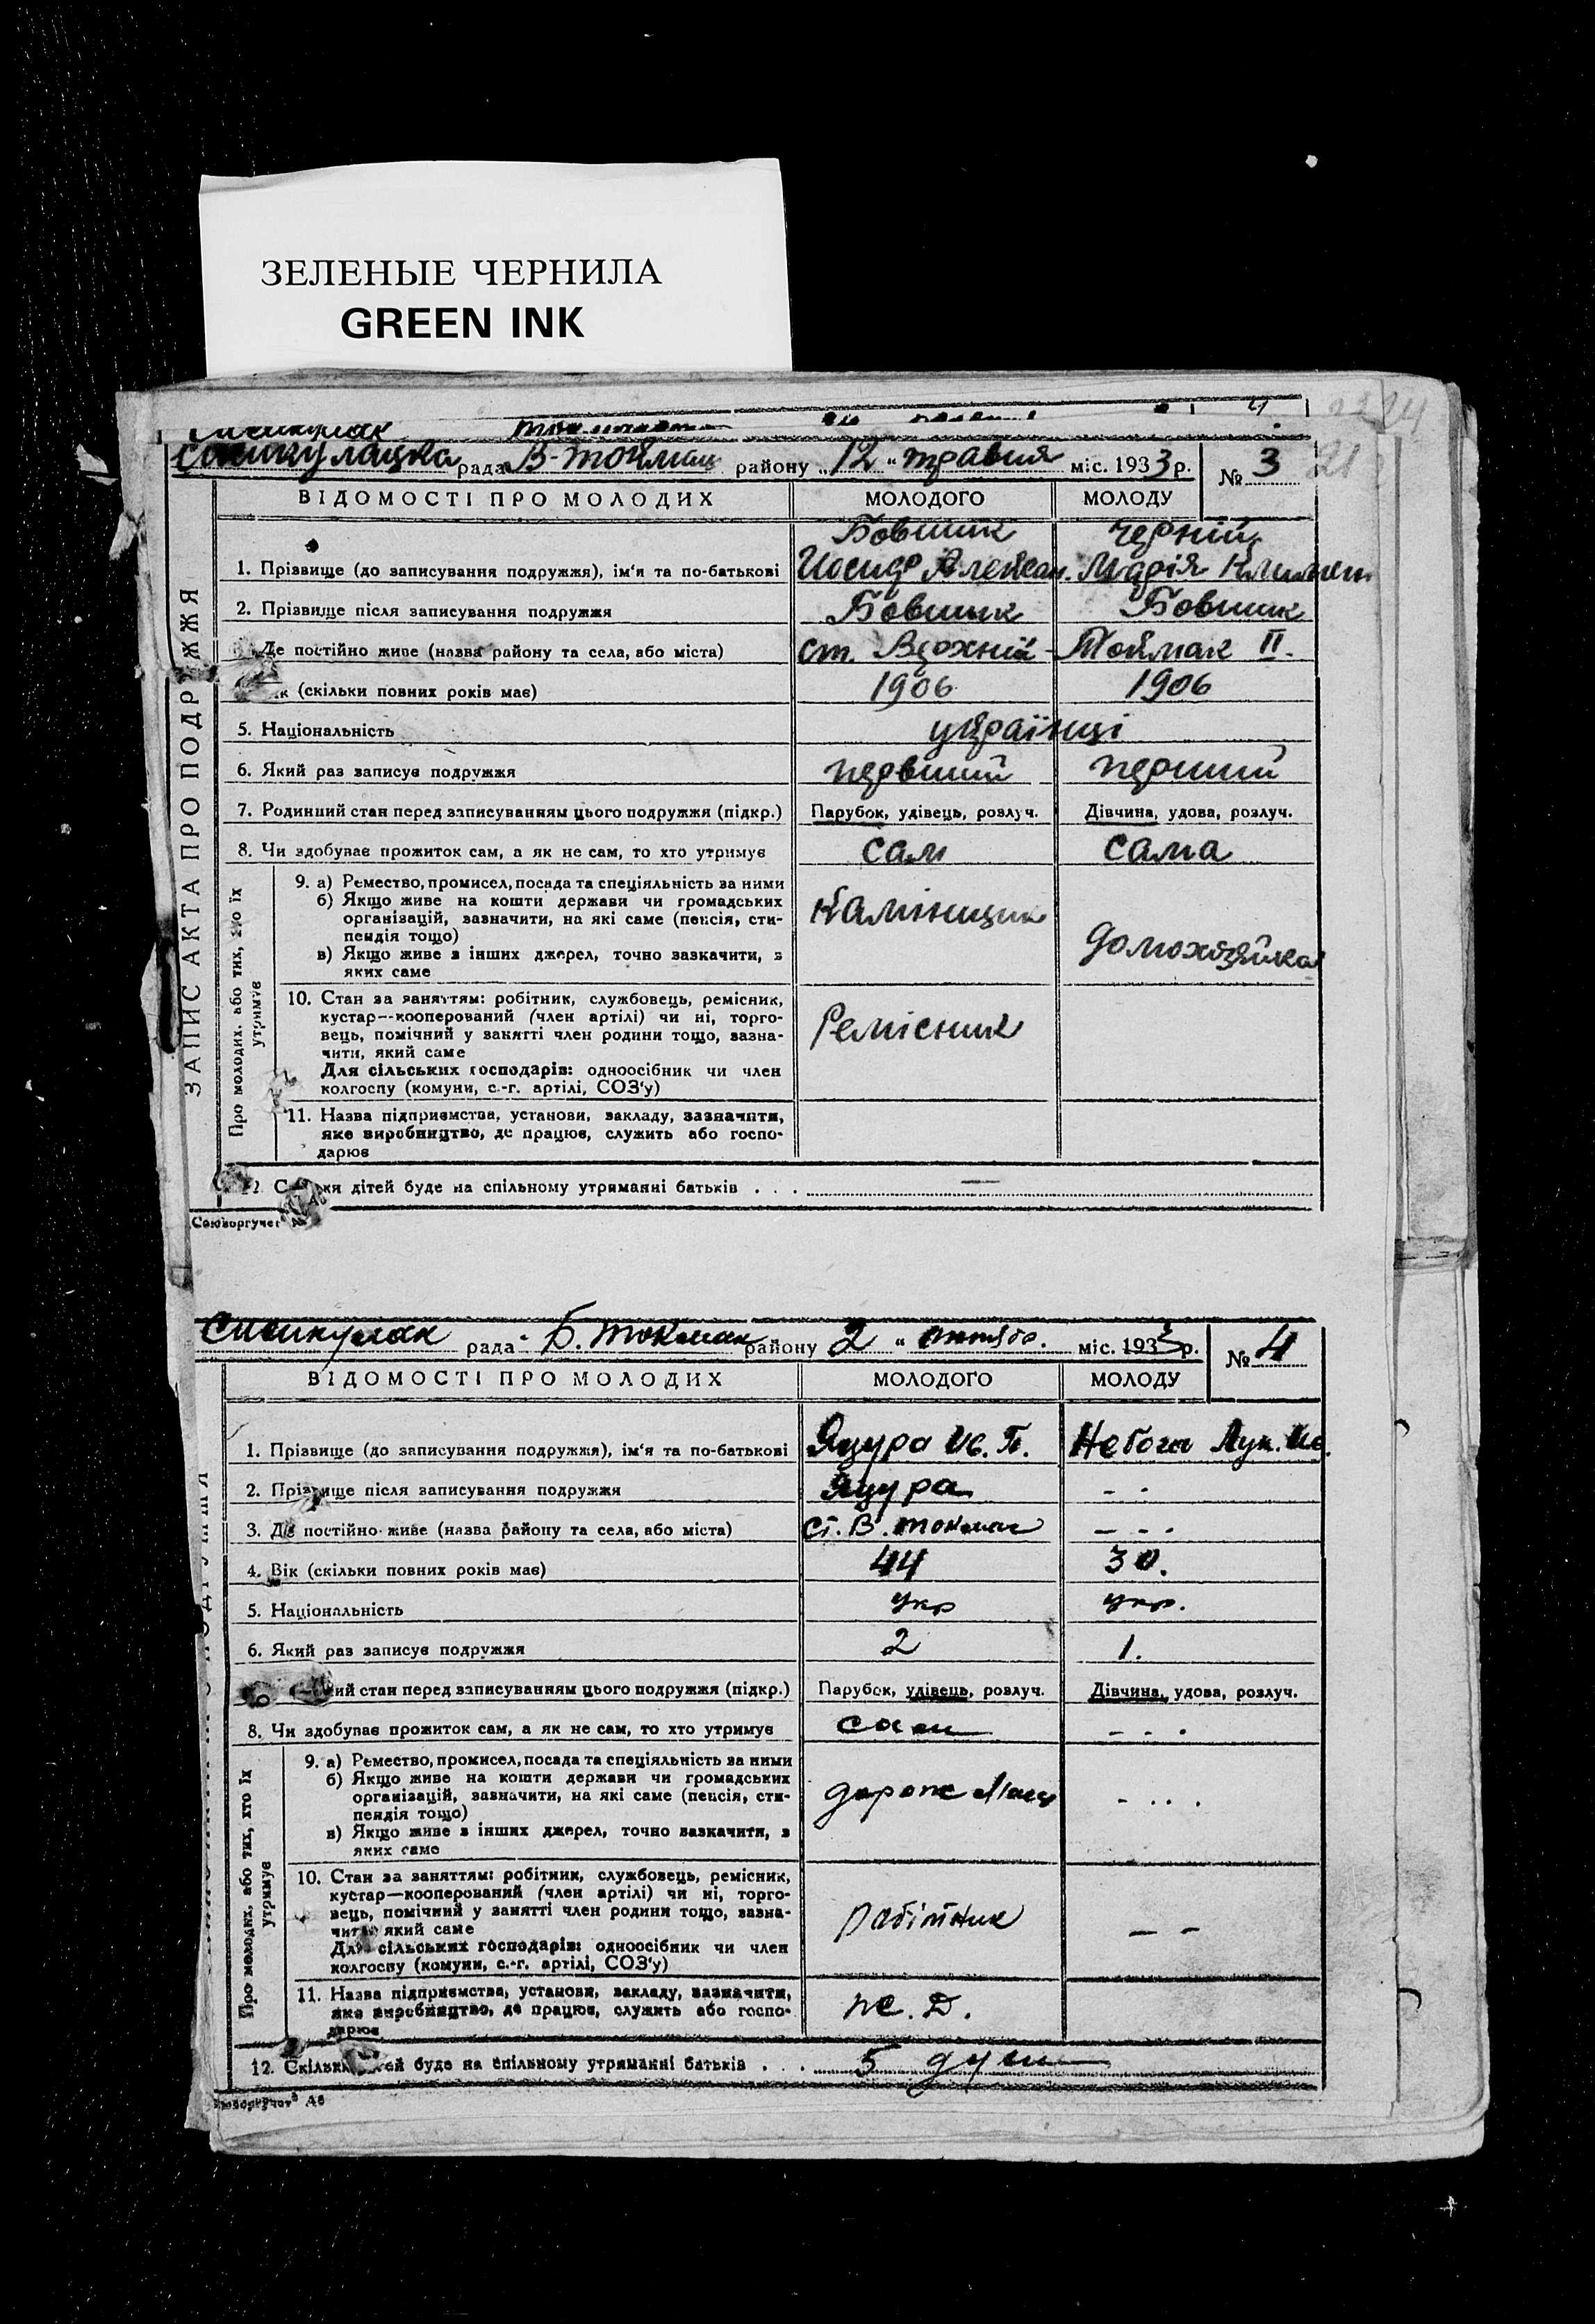 ЗЕЛЕНЫЕ ЧЕРНИЛА
GREEN INK
рада В-Токмац району „12“ травня міс. 1933 р. № 3
ВІДОМОСТІ ПРО МОЛОДИХ МОЛОДОГО МОЛОДУ
ЗАПИС АКТА ПРО ПОДРУЖЖЯ
Бовшик Черній
1. Прізвище (до записування подружжя), ім'я та по-батькові Иосиф Алексан. Марія Климент
2. Прізвище після записування подружжя Бовшик Бовшик
Де постійно живе (назва району та села, або міста) ст. Верхній - Токмак II.
(скільки повних років має) 1906 1906
5. Національність українці
6. Який раз записує подружжя первший перший
7. Родинний стан перед записуванням цього подружжя (підкр.) Парубок, удівець, розлуч. Дівчина, удова, розлуч.
8. Чи здобуває прожиток сам, а як не сам, то хто утримує сам сама
Про молодих, або тих, хто їх утримує
9. а) Ремество, промисел, посада та спеціяльність за ними
б) Якщо живе на кошти держави чи громадських Камінщик
організацій, зазначити, на які саме (пенсія, сти-
пендія тощо)
в) Якщо живе з інших джерел, точно зазкачити, з домохозяйка
яких саме
10. Стан за заняттям: робітник, службовець, ремісник,
кустар--кооперований (член артілі) чи ні, торго-
вець, помічний у занятті член родини тощо, зазна- Ремісник
чити, який саме
Для сільських господарів: одноосібник чи член
колгоспу (комуни, с.-г. артілі, СОЗ'у)
11. Назва підприємства, установи, закладу, зазначити,
яке виробництво, де працює, служить або госпо-
дарює
дітей буде на спільному утриманні батьків . . . —
Союзоргучет
Сисикулак рада Б. Токмак району 2 “ октябр. міс. 1933 р. № 4
ВІДОМОСТІ ПРО МОЛОДИХ МОЛОДОГО МОЛОДУ
1. Прізвище (до записування подружжя), ім'я та по-батькові Яцура Ив. П. Небога Лук. Ив.
2. Прізвище після записування подружжя Яцура - -
3. Де постійно живе (назва району та села, або міста) ст. В. Токмак - - -
4. Вік (скільки повних років має) 44 30.
5. Національність укр укр.
6. Який раз записує подружжя 2 1.
стан перед записуванням цього подружжя (підкр.) Парубок, удівець, розлуч. Дівчина, удова, розлуч.
8. Чи здобуває прожиток сам, а як не сам, то хто утримує сам - - -
Про молодих, або тих, хто їх утримує
9. а) Ремество, промисел, посада та спеціяльність за ними
б) Якщо живе на кошти держави чи громадських
організацій, зазначити, на які саме (пенсія, сти- - - - -
пендія тощо)
в) Якщо живе з інших джерел, точно зазкачити, з
яких саме
10. Стан за заняттям: робітник, службовець, ремісник,
кустар—кооперований (член артілі) чи ні, торго-
вець, помічний у занятті член родини тощо, зазна- робітник
чити який саме - -
Для сільських господарів: одноосібник чи член
колгоспу (комуни, с.-г. артілі, СОЗ'у)
11. Назва підприємства, установи, закладу, зазначити,
яке виробництво, де працює, служить або госпо- ж. д.
дарює
12. Скільки дітей буде на спільному утриманні батьків . . . 5 душ